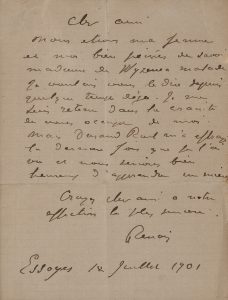 Cher ami
Nous etions ma femme
et moi bien peinés de savoir
madame de Wyzewa malade
je voulais vous le dire depuis
quelque temps déja. Je me
suis retenu dans la crainte
de vous occuper de moi.
mais Durand Ruel m'a
la derniere fois que je l'ai
vu et nous serions bien
heureux d'apprendre un mieux
Croyez cher ami a notre
affection la plus sincere.
Renoir
Essoyes 12 Juillet 1901